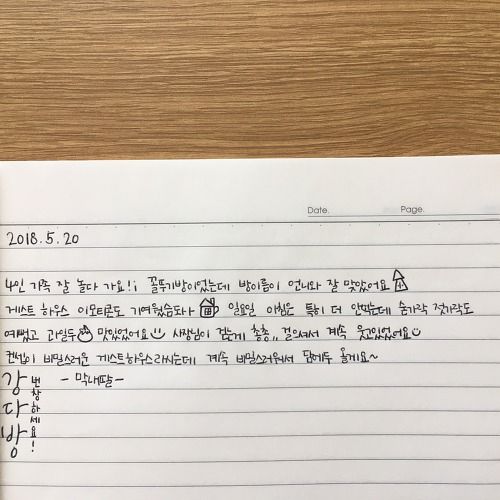 Date. Page.
2018.5.20
4인 가족 잘 놀다 가요!¡ 꼴뚜기방이었는데 방이름이 언니와 잘 맞았어요
게스트 하우스 이모티콘도 기여웠습돠ㅏ 일요일 아침은 특히 더 숟가락 젓가락도
예뻤고 과일두 맛있었어요 사장님이 총총,, 걸으셔서 계속 웃고있었어요
컨셉이 비밀스러운 게스트하우스라씨는데 계속 비밀스러워서 담에두 올게요~
강 번 -막내딸-
다 창하
방 세요!